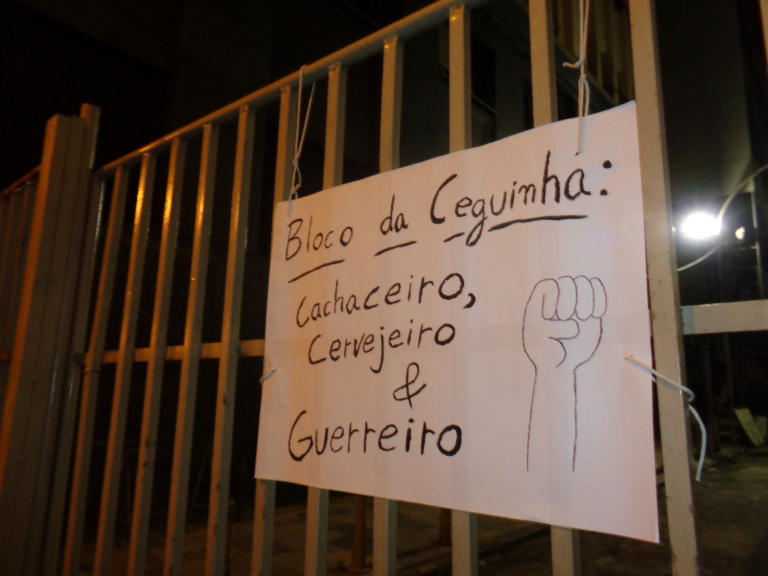 Bloco da Ceguinha:
Cachaceiro,
Cervejeiro
&
Guerreiro